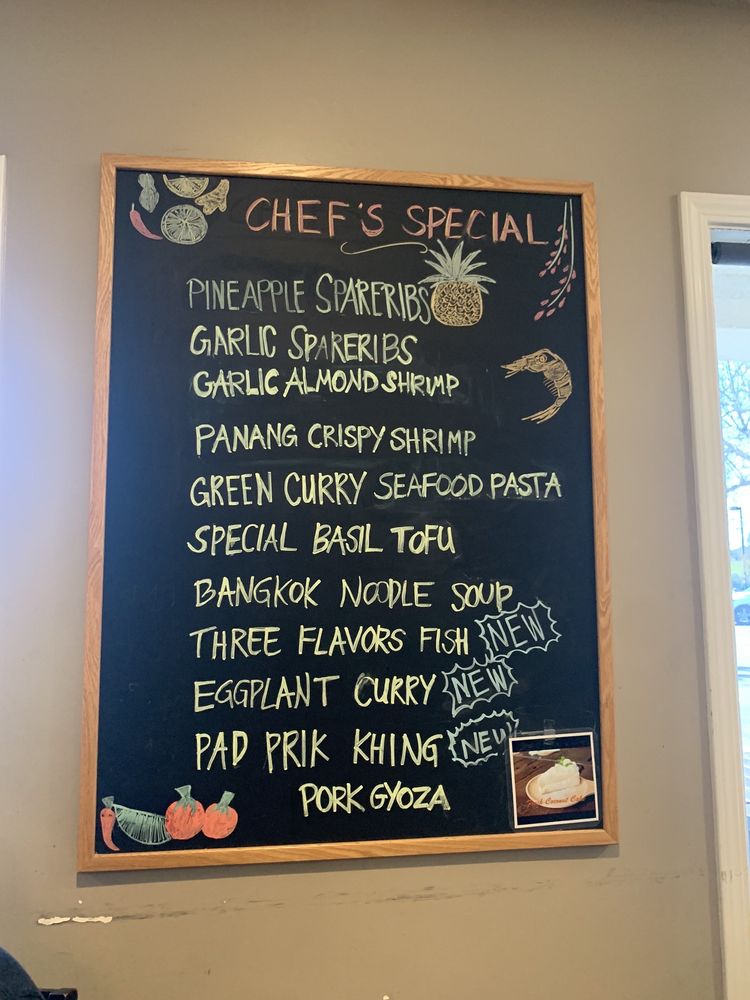 CHEF'S SPECIAL
PINEAPPLE SPARERIBS
GARLIC SPARERIBS
GARLIC ALMOND SHRIMP
PANANG CRISPY SHRIMP
GREEN CURRY SEAFOOD PASTA
SPECIAL BASIL TOFU
BANGKOK NOODLE SOUP
THREE FLAVORS FISH NEW
EGGPLANT CURRY NEW
PAD PRIK KHING NEW
PORK GYOZA
Coconut